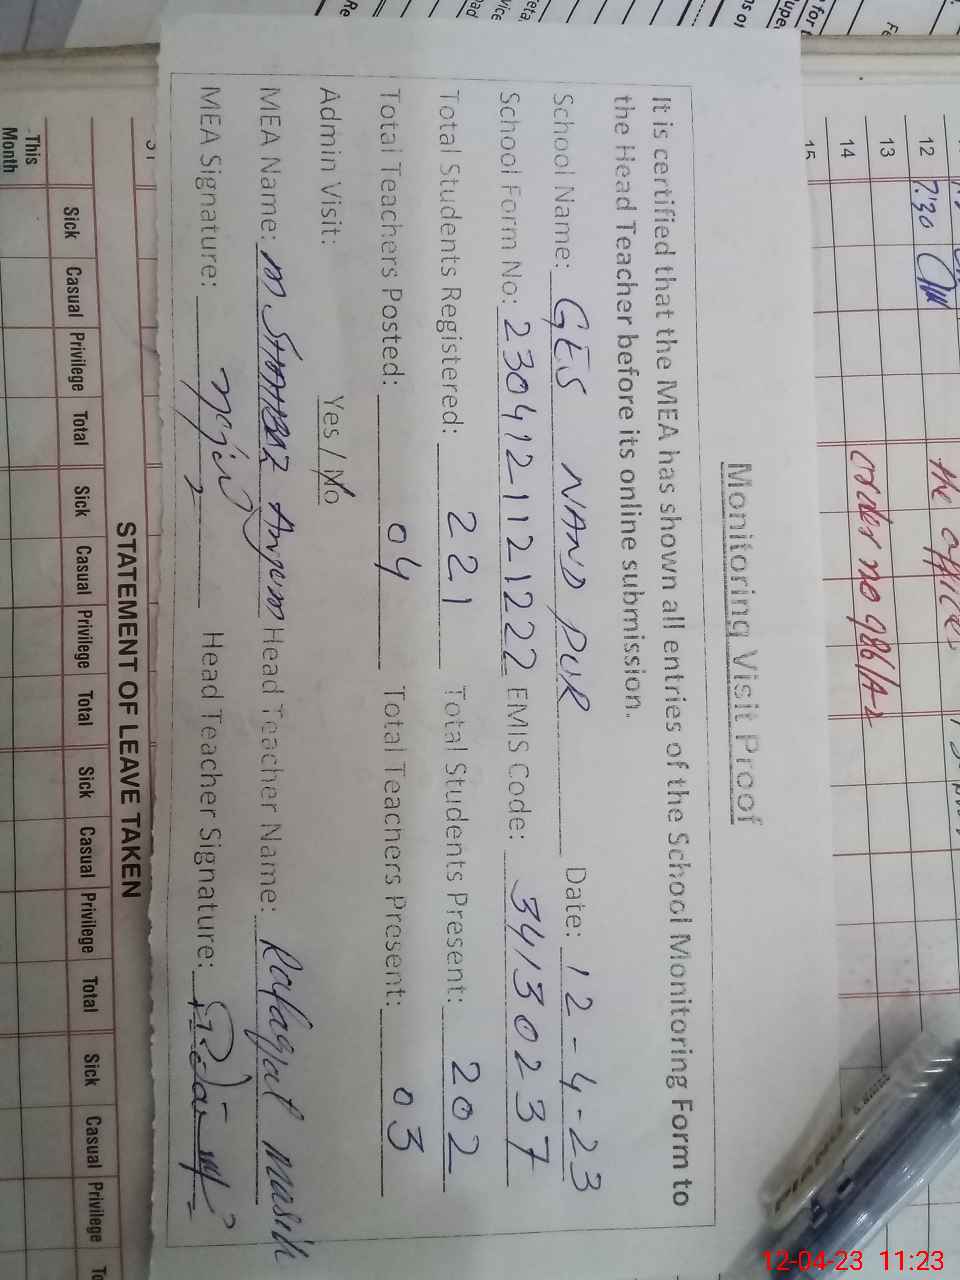 Monitoring Visit Proof
It is certified that the MEA has shown all entries of the School Monitoring Form to
the Head Teacher before its online submission.
School Name: GES NAND PUR Date: 12-4-23
School Form No: 2304121121222 EMIS Code: 34130237
Total Students Registered: 221 Total Students Present: 202
Total Teachers Posted: 04 Total Teachers Present: 03
Admin Visit: Yes / No
MEA Name: M SHAHBAZ Anjum Head Teacher Name: masih
MEA Signature: Head Teacher Signature:
STATEMENT OF LEAVE TAKEN
Sick Casual Privilege Total Sick Casual Privilege Total Sick Casual Privilege Total Sick Casual Privilege
This
Month
12 7:30
13
14
15
the office
order no 986/A-2
12-04-23 11:23